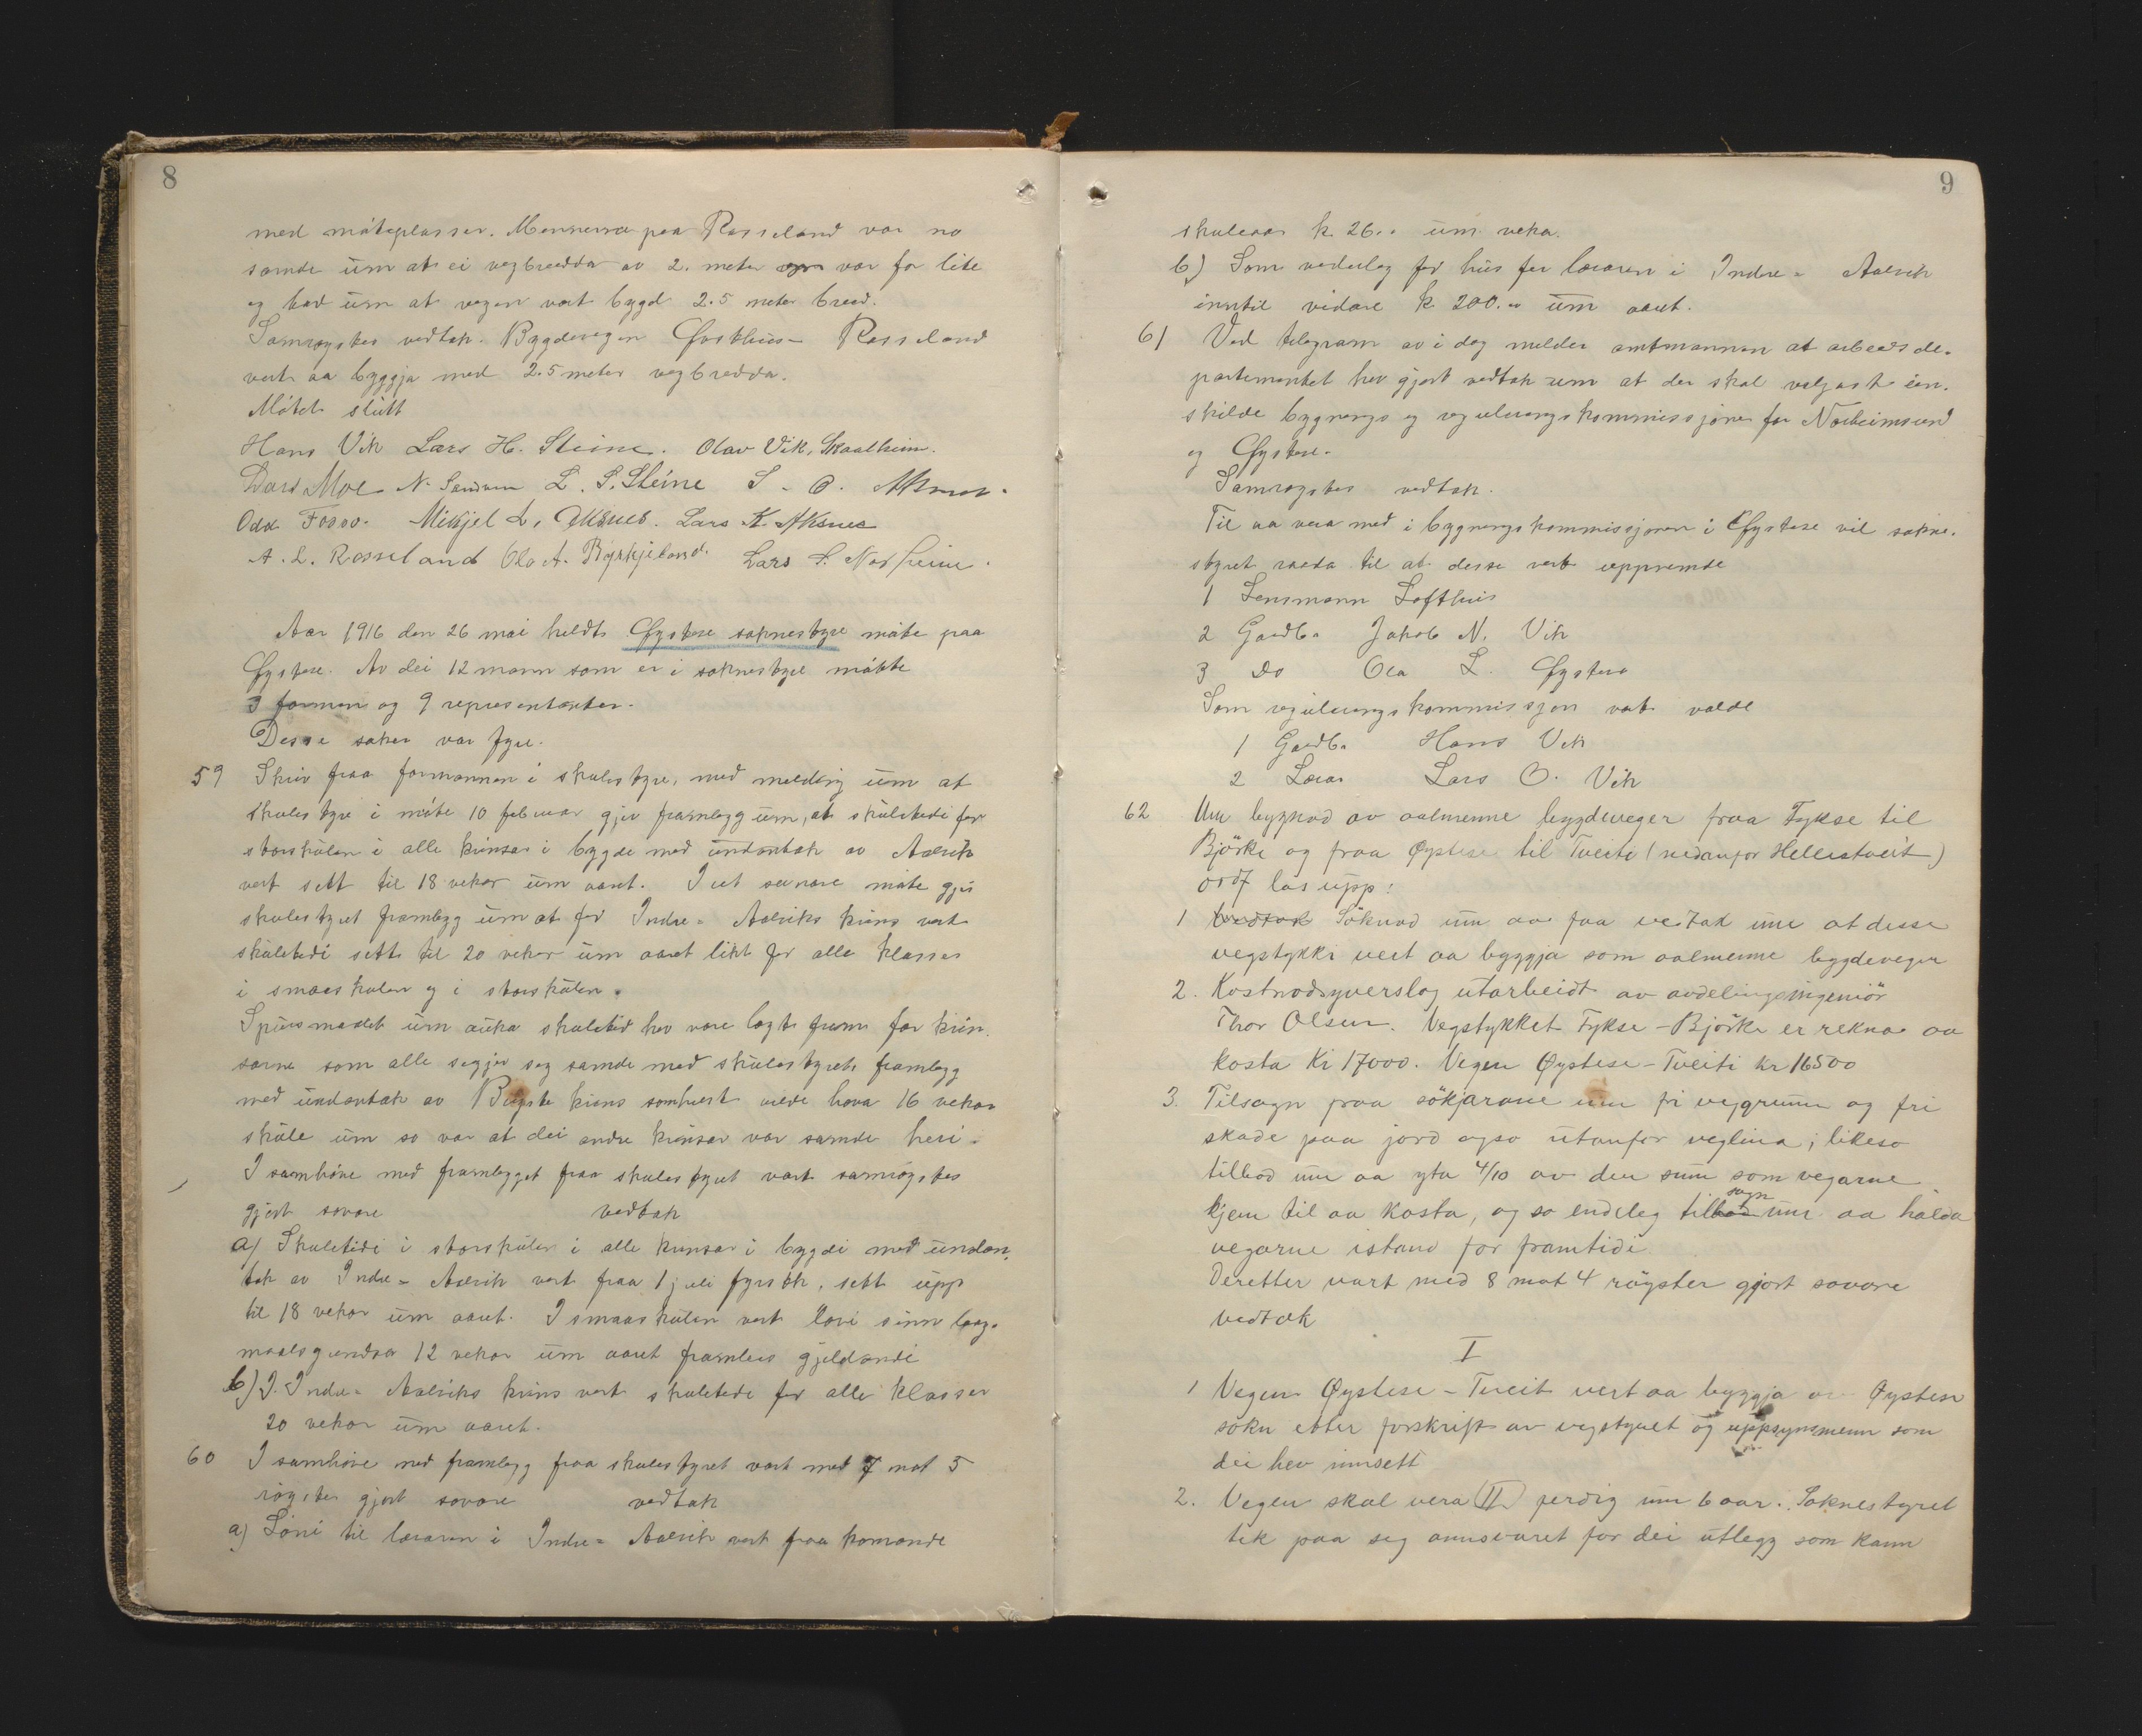 8
med móteplasser. Mennerne paa Rosseland var no
samde um at ei vegbreidda av 2. meter var for lite
og bad um at vegen vart bygd 2.5 meter breid.
Samrøystes vedtak. Bygdevegen Øvsthus - Rosseland
vert aa byggja med 2.5 meter vegbredda.
Mótet slutt
Hans Vik Lars H. Steine. Olav Vik, Skaalheim.
Lars Moe N. Sandven L. S. Steine S. O. Aksnes.
Odd Fosso. Mikjel L. Aksnes. Lars K. Aksnes
A. L. Rosseland Ola A. Byrkjeland. Lars S. Norheim.
Aar 1916 den 26 mai heldt Øystese soknestyre móte paa
Øystese. Av dei 12 mann som er i soknestyre mótte
3 formenn og 9 representanter.
Desse saker var fyre.
59 Skriv fraa formannen i skulestyre, med melding um at
skulestyre i móte 10 februar gjev framlegg um, at skuletidi for
storskulen i alle krinsar i bygdi med undantak av Aalvik
vert sett til 18 vekor um aaret. I eit seinare móte gjev
skulestyret framlegg um at for Indre = Aalviks krins vert
skuletidi sett til 20 vekor um aaret likt for alle klasser
i smaaskulen og i storskulen.
Spursmaalet um auka skuletid hev vore lagt fram for krin-
sarne som alle segjer seg samde med skulestyrets framlegg
med undantak av Bugste krins somhelst vilde hava 16 vekor
skule um so var at dei andre krinsar var samde heri.
I samhóve med framlegget fraa skulestyret vart samrøystes
gjort sovore vedtak
a) Skuletidi i storskulen i alle krinsar i bygdi med undan-
tak av Indre = Aalvik vert fraa 1 juli fyrstk. sett upp
til 18 vekor um aaret. I smaaskulen vert lovi sinn laag-
maalsgrensa 12 vekor um aaret framleis gjeldandi
b) I Indre = Aalviks krins vert skuletide for alle klasser
20 vekor um aaret.
60 I samhóve med framlegg fraa skulestyret vart med 7 mot 5
røyster gjort sovore vedtak
a) Lóni til læraren i Indre = Aalvik vert fraa komande
9
skuleaar kr 26.. um veka.
b) Som vederlag for hus for læraren i Indre = Aalvik
inntil vidare kr 200.. um aaret.
61 Ved telegram av i dag melder amtmannen at arbeidsde-
partementet hev gjort vedtak um at der skal veljast sær-
skilde bygnings og reguleringskommissjoner for Norheimsund
og Øystese.
Samrøystes vedtak.
Til aa vera med i bygningskommissjonen i Øystese vil sokne-
styret raada til at desse vert uppnemde
1 Lensmann Lofthus
2 Gardb. Jakob N. Vik
3 Do Ola L. Øystese
Som reguleringskommissjon vart valde
1 Gardb. Hans Vik
2 Lærar Lars O. Vik
62 Um bygnad av aalmenne bygdeveger fraa Fykse til
Björke og fraa Øystese til Tveite (nedanfor Hellestveit)
ordf las upp:
1 Vedtak Söknad um aa faa vedtak um at desse
vegstykki vert aa byggja som aalmenne bygdeveger
2. Kostnadsyverslag utarbeidt av avdelingsingeniör
Thor Olsen. Vegstykket Fykse - Björke er rekna aa
kosta Kr 17000. Vegen Øystese - Tveiti kr 16500
3. Tilsagn fraa sökjarane um fri veggrunn og fri
skade paa jord ogso utanfor veglina; likeso
tilbod um aa yta 4/10 av den sum som vegarne
kjem til aa kosta, og so endeleg tilsagn um aa halda
vegarne istand for framtidi
Deretter vart med 8 mot 4 röyster gjort sovore
vedtak
I
1 Vegen Øystese - Tveit vert aa byggja av Øystese
sokn etter forskrift av vegstyret og uppsynsmenn som
dei hev innsett
2. Vegen skal vera II ferdig um 6 aar. Soknestyret
tek paa seg annsvaret for dei utlegg som kann